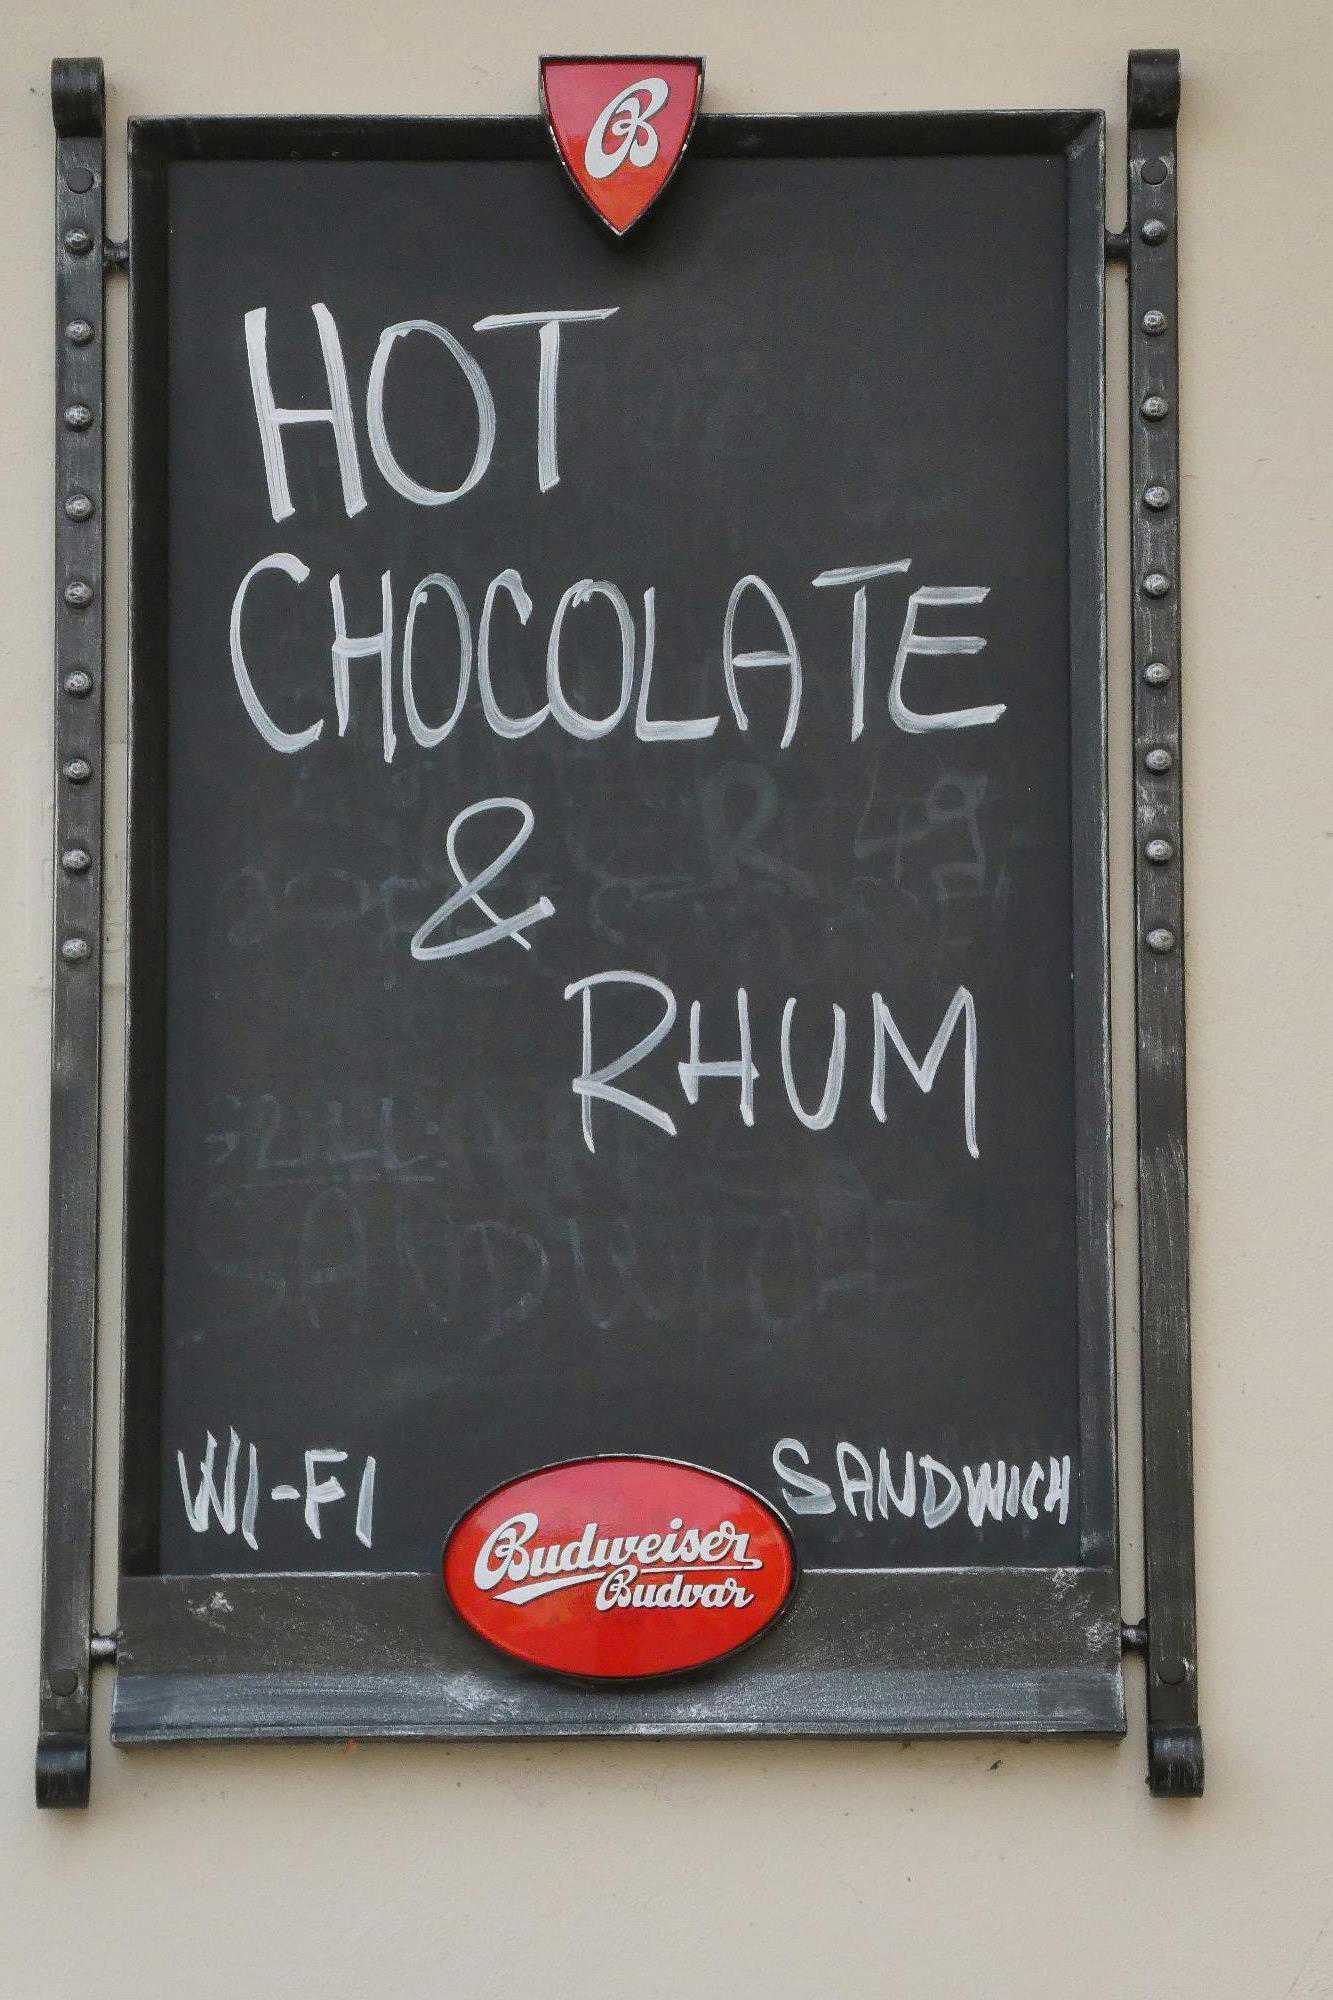 B
HOT
CHOCOLATE
&
RHUM
WI-FI
SANDWICH
Budweiser
Budvar